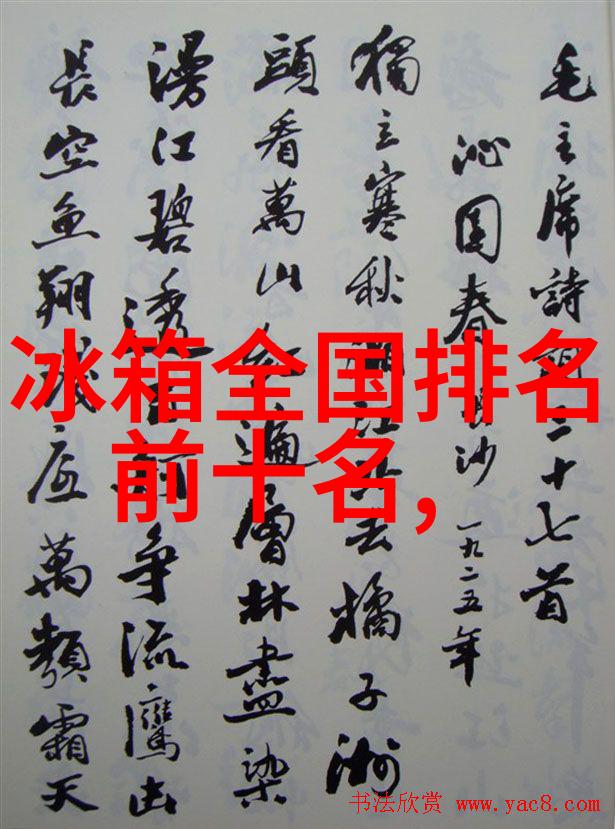 毛主席詩詞三十七首
沁园春 長沙 一九二五年
獨立寒秋湘江北去橘子洲
頭看萬山红遍層林盡染
漫江碧透百舸争流鷹击
長空鱼翔浅底萬類霜天
冰箱全国排名
前十名,
书法欣赏 www.yac8.com